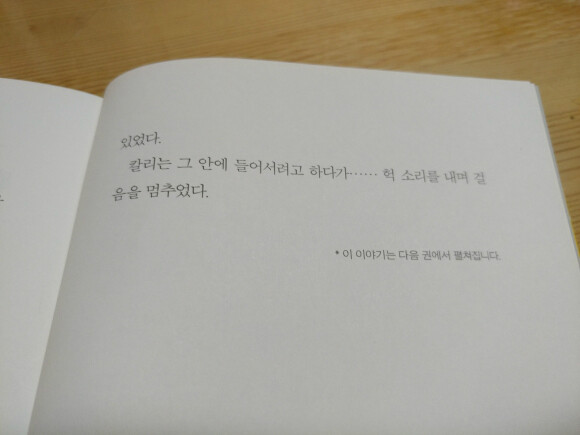 있었다.
칼리는 그 안에 들어서려고 하다가…… 헉 소리를 내며 걸
음을 멈추었다.
* 이 이야기는 다음 권에서 펼쳐집니다.